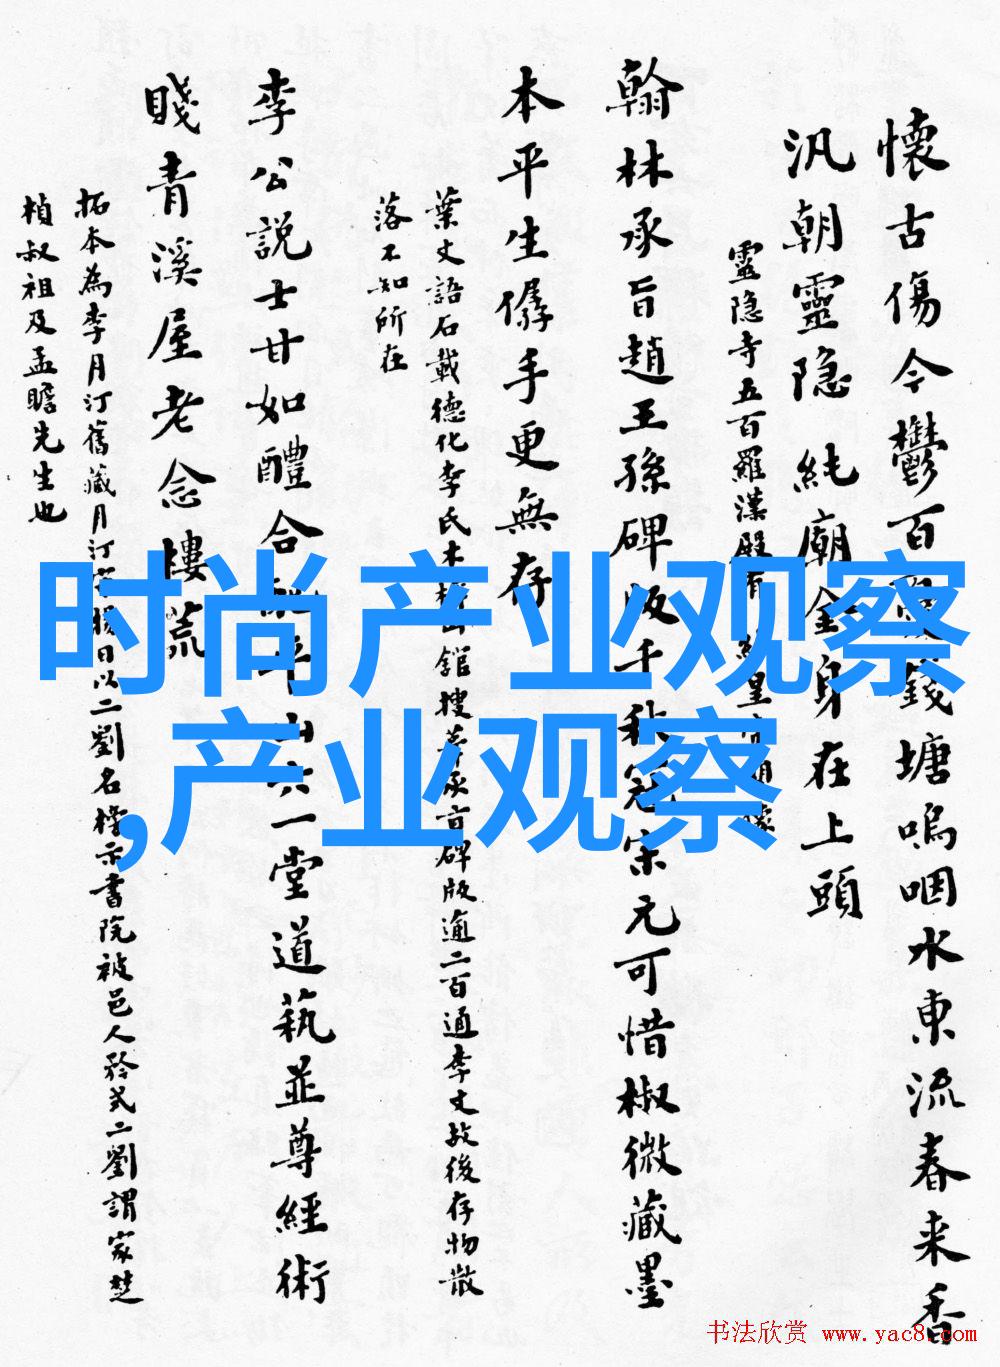 懷古傷今鬱百憂錢塘嗚咽水東流春来香
汎朝靈隐純廟金身在上頭
靈隐寺五百羅漢殿有純皇
翰林承旨趙王孫碑版千秋冠宋元可惜椒微藏墨
本平生儔手更無存
葉文語石載德化李氏木
館搜葺承旨碑版逾二百通李文故後存物散
落不知所在
李公説士甘如醴合
一堂道藝並尊經術
賤青溪屋老念樓荒
拓本為李月汀舊藏月汀
日以二劉名榜示書院被邑人矜式二劉謂家楚
楨叔祖及孟瞻先生也
时尚产业观察
,产业观察
书法欣赏 www.yac8.com